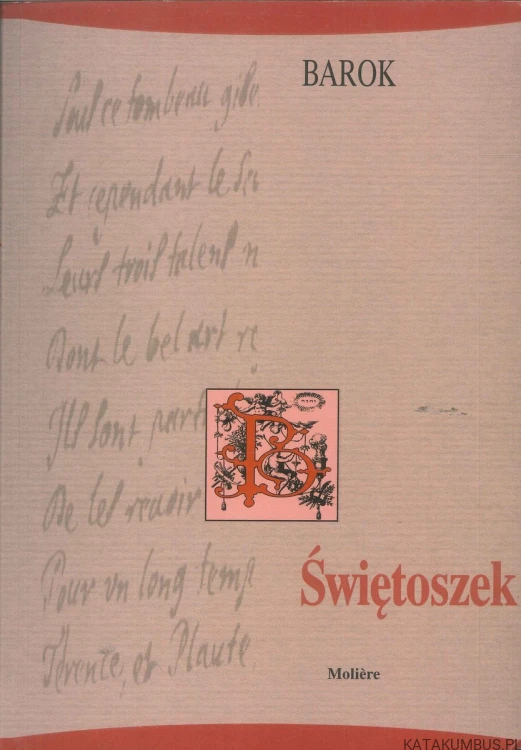 BAROK
Sous ce tombeau gise
Et cependant le
Leurs trois talens n
Dont le bel art re
Ils sont parti
De les revoir
Pour un long temp
Térence, et Plaute
B
Świętoszek
Molière
KATAKUMBUS.PL